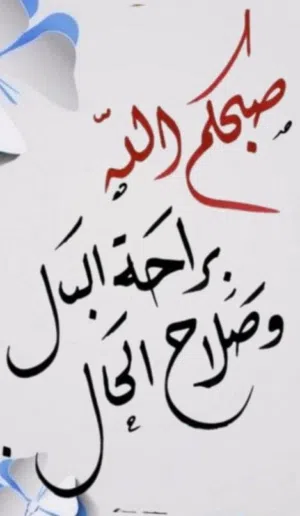 صبحكم الله
براحة البال
وصلاح الحال